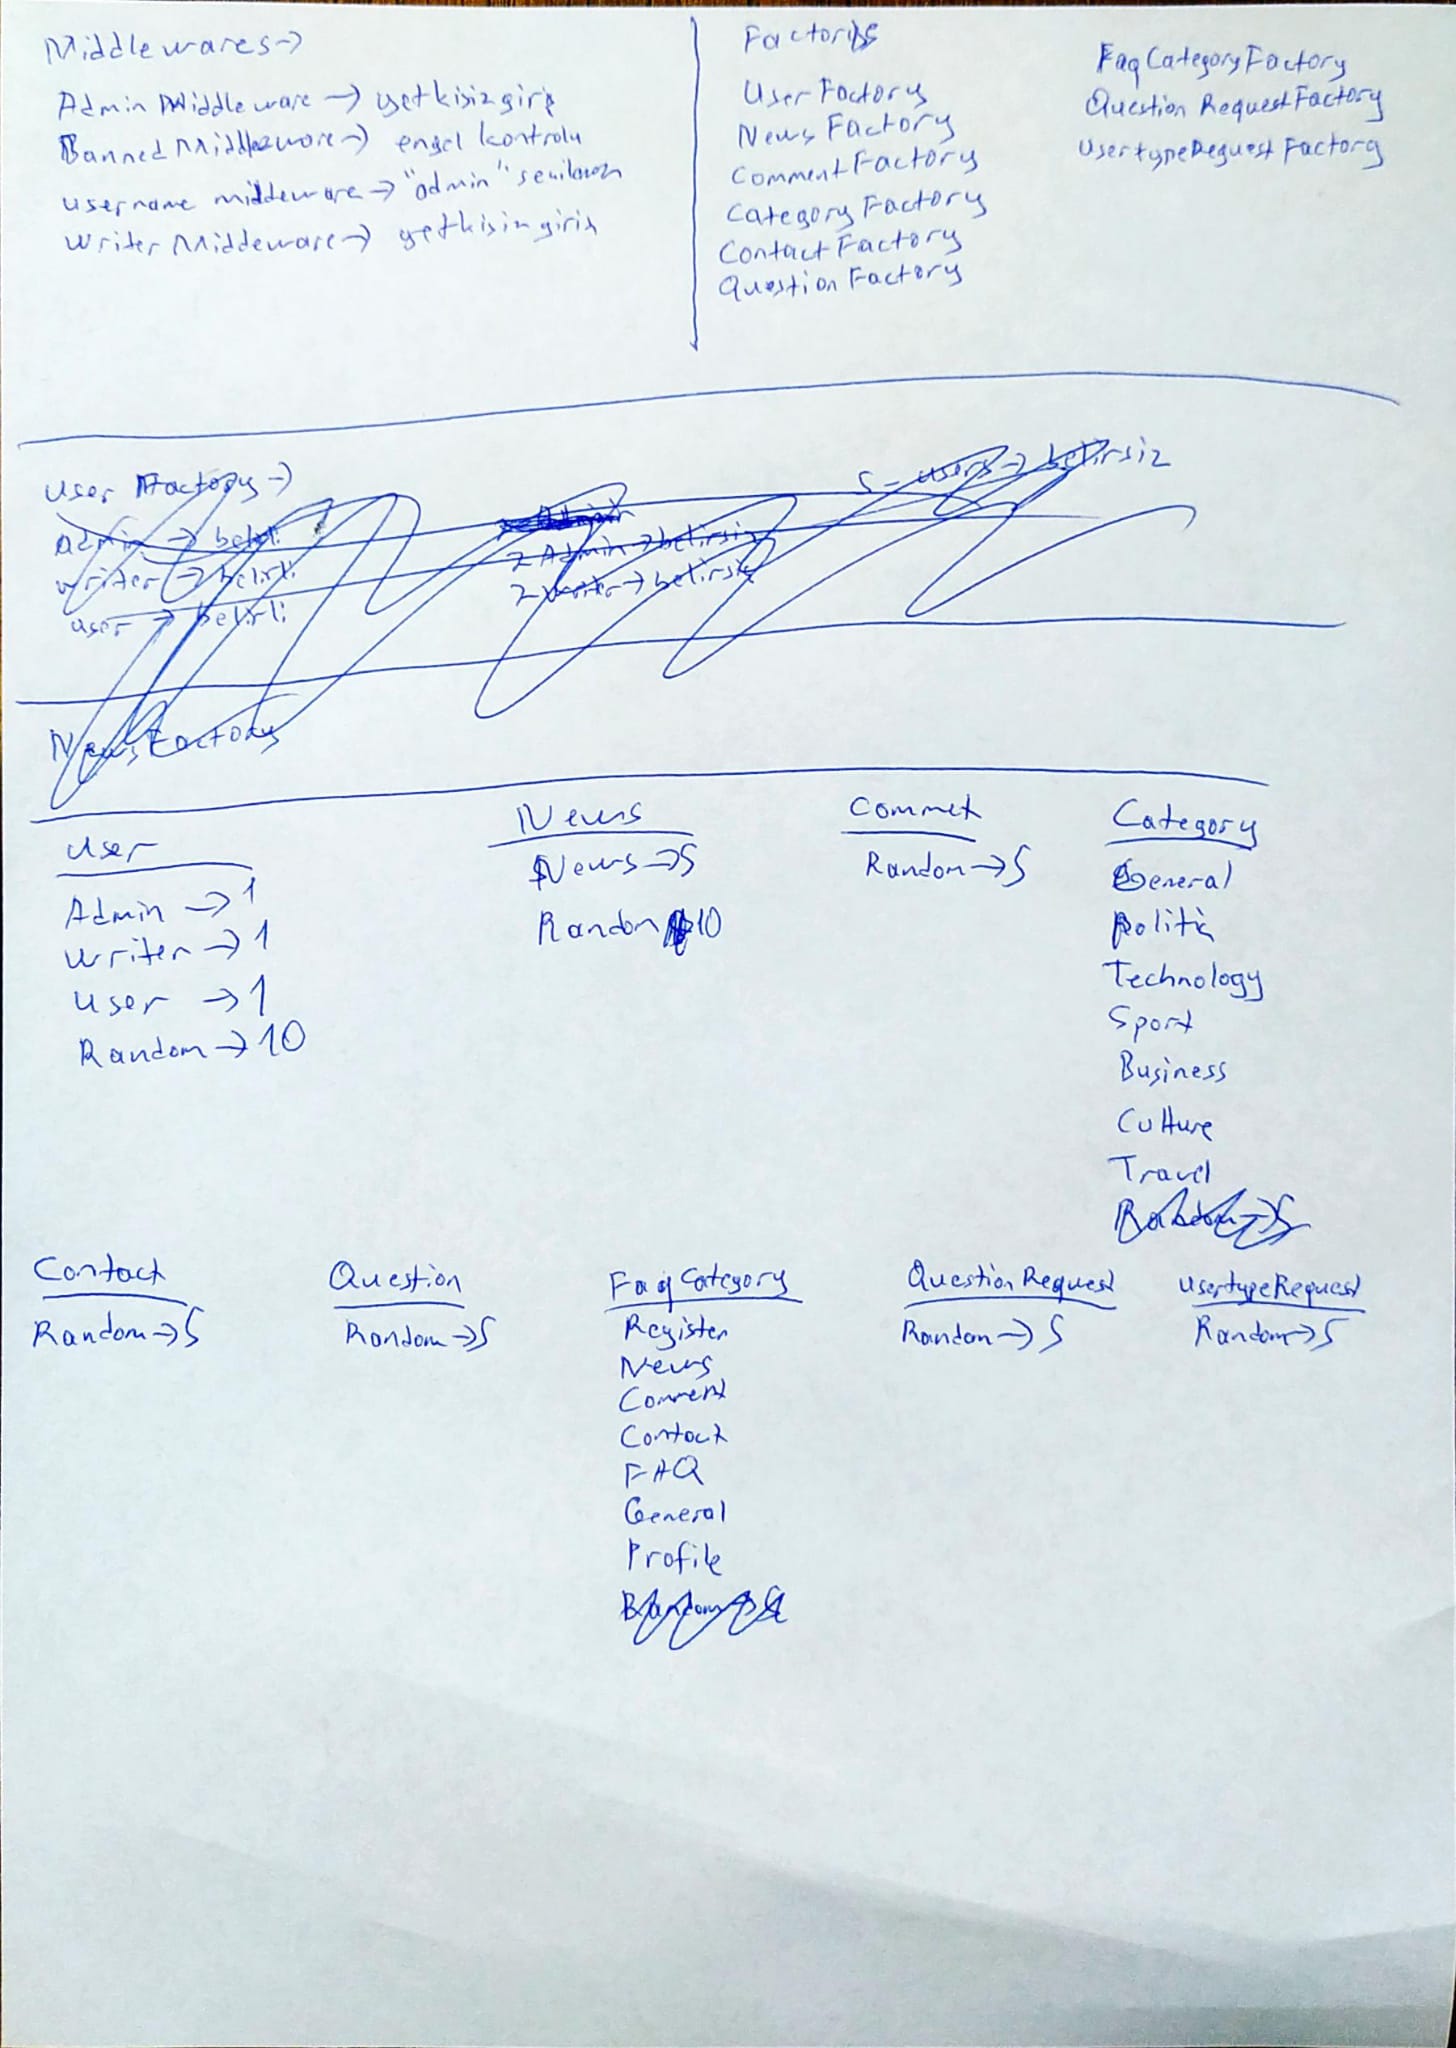 Middlewares →
Admin Middleware → yetkisiz giriş
Banned Middleware → engel kontrolu
username middeware → "admin"
Writer Middeware → yetkisiz giriş
Factories
UserFactory
News Factory
CommentFactory
Category Factory
Contact Factory
Question Factory
FaqCategoryFactory
Question RequestFactory
UsertypeRequest Factory
User Factory →
admin → belirli
writer → belirli
user → belirli
Admin
2 Admin → belirsiz
2 writer → belirsiz
5 - users → belirsiz
News Factory
User
Admin → 1
Writer → 1
User → 1
Random → 10
News
News → 5
Random 10
Commet
Random → 5
Category
General
Politic
Technology
Sport
Business
Culture
Travel
Random → 5
Contact
Random → 5
Question
Random → 5
Faq Category
Register
News
Comment
Contact
FAQ
General
Profile
Random → 5
QuestionRequest
Random → 5
UsertypeRequest
Random → 5